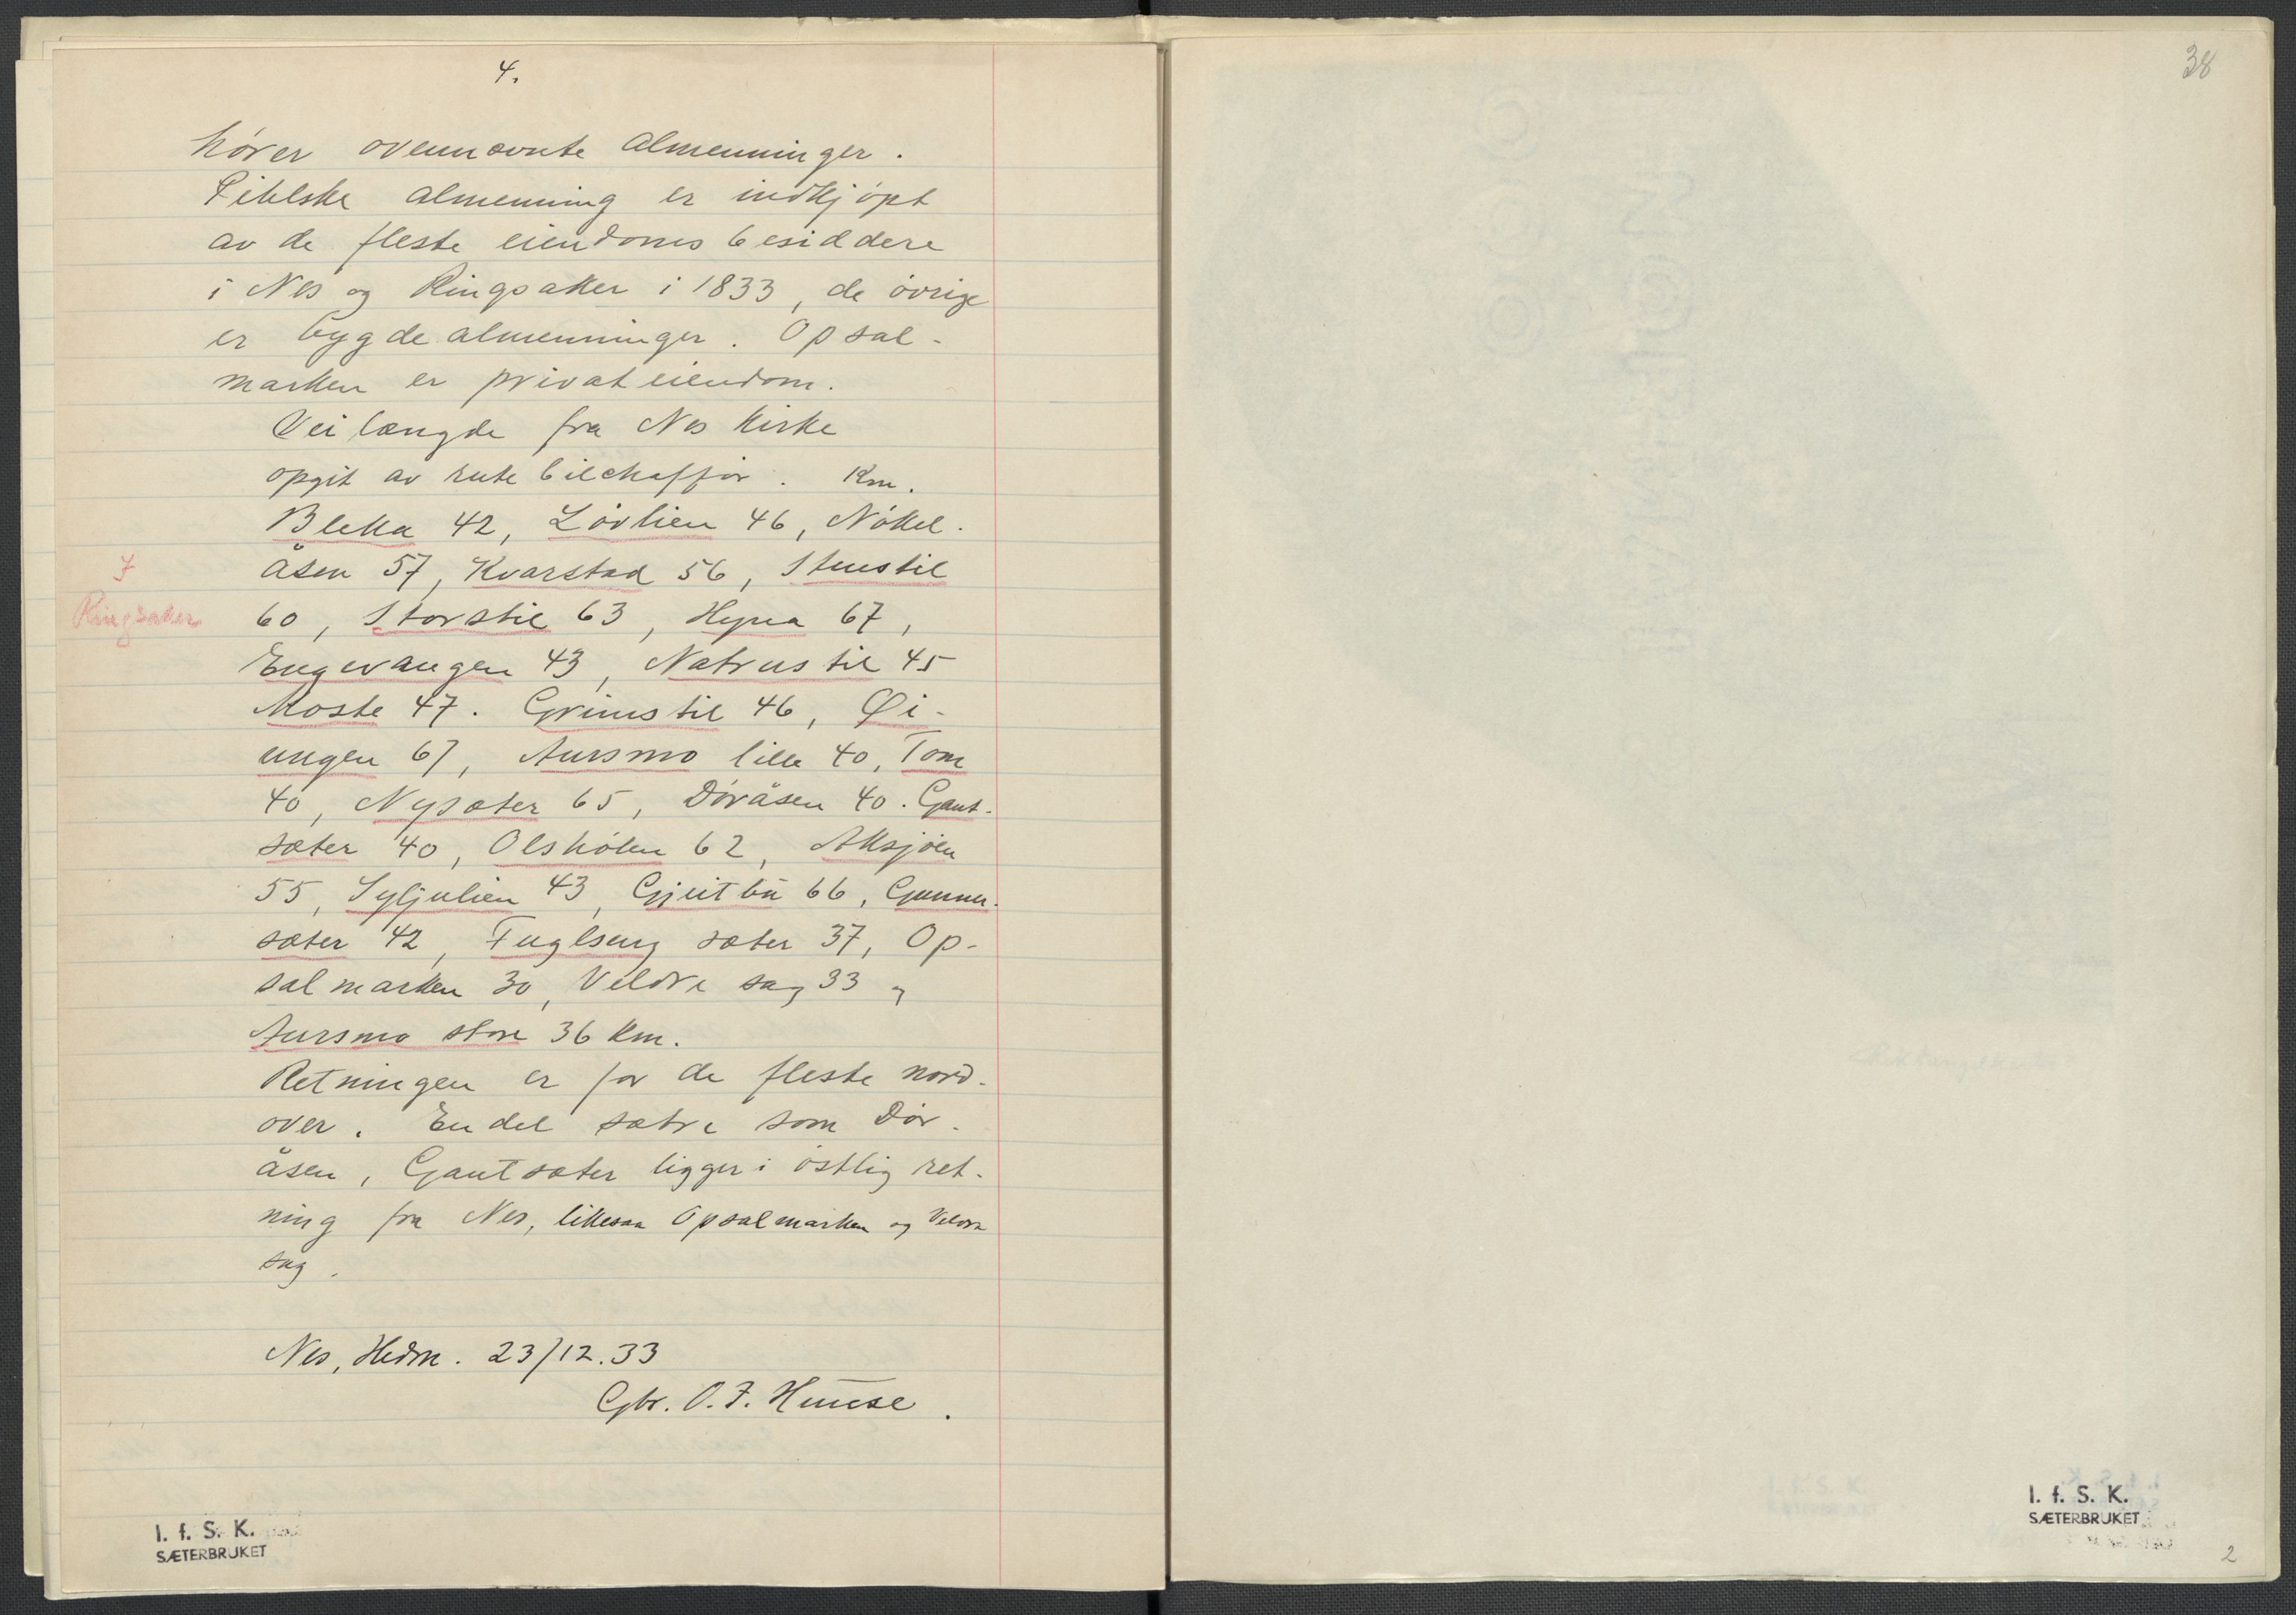 4.
hører ovennævnte almenninger.
Pihlske almenning er indkjøpt
av de fleste eiendomsbesiddere
i Nes og Ringsaker i 1833, de øvrige
er bygdealmenninger. Opsal-
marken er privateiendom.
Veilængde fra Nes kirke
opgit av rutebilchaffør. Km.
Bleka 42, Løvlien 46, Nökel-
åsen 57, Kvarstad 56, Stenstil
I
Ringsaker
60, Storstil 63, Hynna 67,
Engevangen 43, Natrustil 45
Moste 47. Grimstil 46, Øi-
ungen 67, Aursmo lille 40, Tom
40, Nysæter 65, Døråsen 40. Gaut-
sæter 40, Olshølen 62, Aksjøen
55, Syljulien 43, Gjeitbu 66, Gunnu-
sæter 42, Fuglseng sæter 37, Op-
salmarken 30, Veldre sag 33 og
Aursmo store 36 km.
Retningen er for de fleste nord-
over. Endel sætre som Dør-
åsen, Gautsæter ligger i østlig ret-
ning fra Nes, likesaa Opsalmarken og Veldre
sag.
Nes, Hedm. 23/12.33
Gbr. O. F.
I. f. S. K.
SÆTERBRUKET
38
I. f. S. K.
SÆTERBRUKET
2